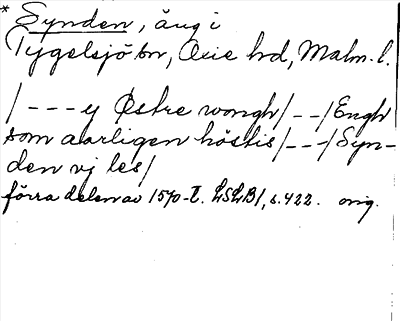 * Synden, äng i
Tygelsjö sn, Oxie hd, Malm. l.
/ - - - y Østre wongh / - - / Engh
som aarligen höstis / - - / Syn-
den vj les /
förra delen av 1570-t. LSLB 1, s. 422. orig.